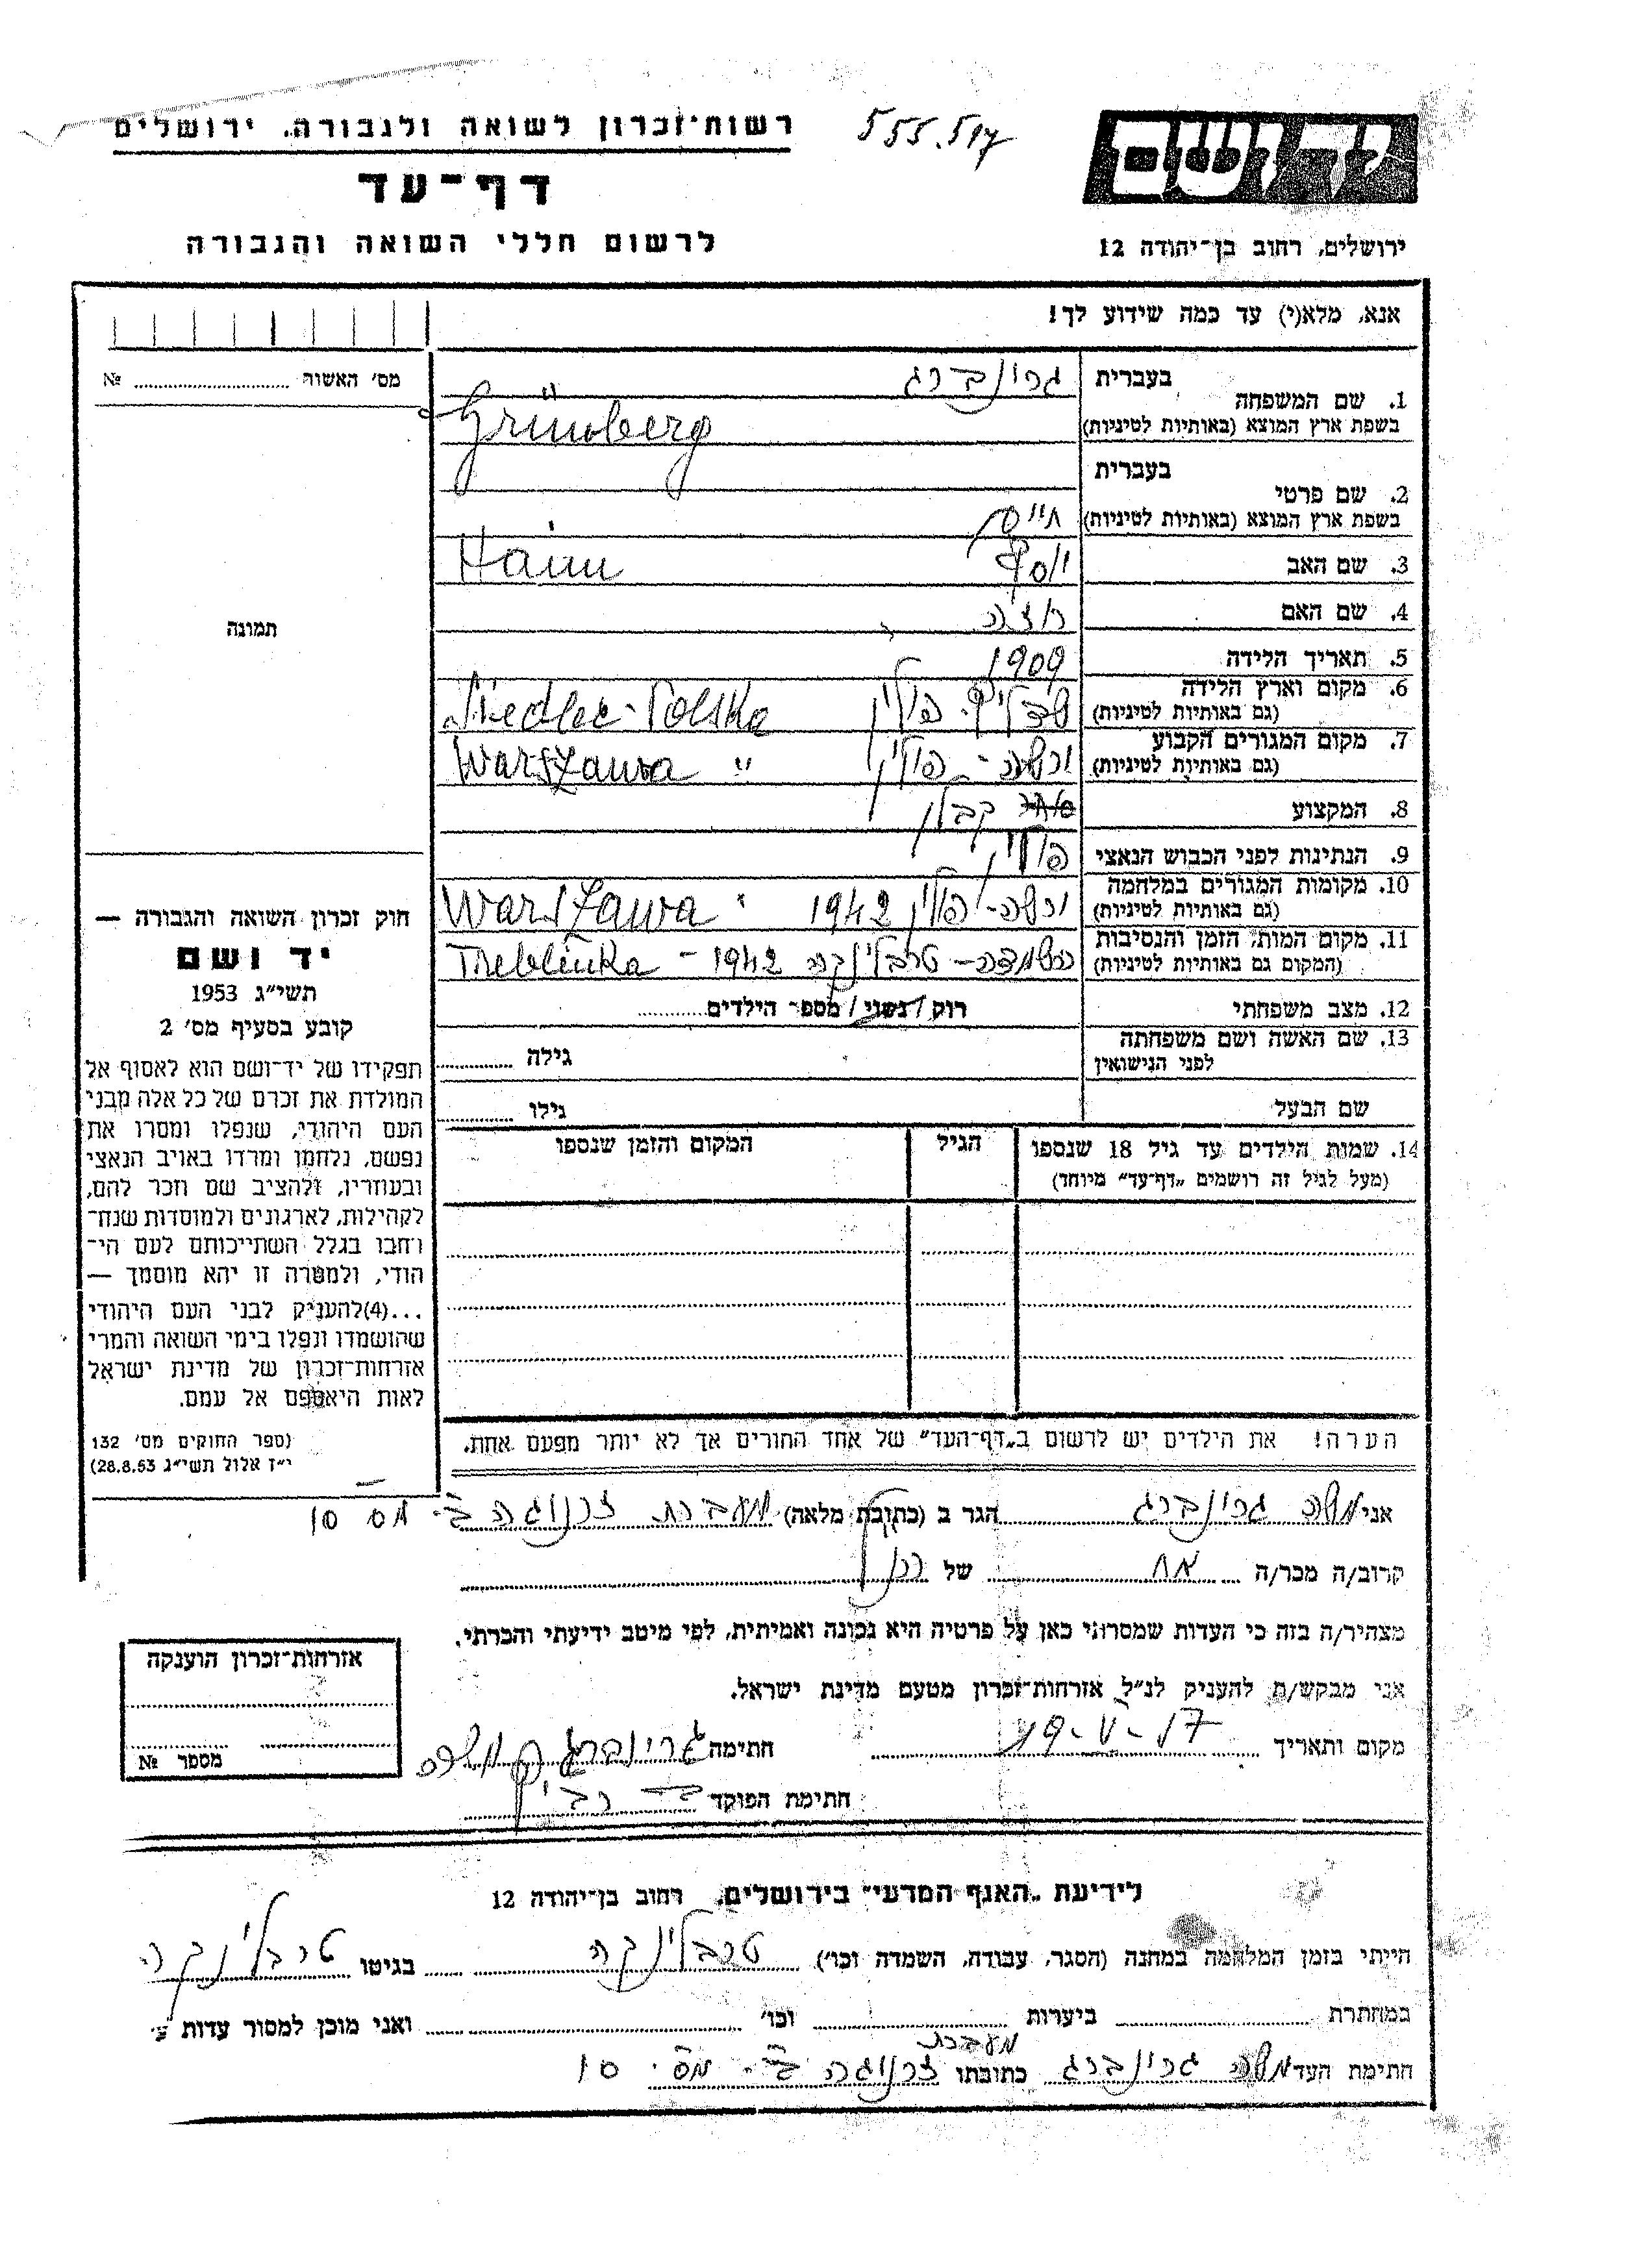 רשות־זכרון לשואה ולגבורה, ירושלים
555.517
יד ושם
דף־עד
לרשום חללי השואה והגבורה
ירושלים, רחוב בן־יהודה 12
אנא, מלא(י) עד כמה שידוע לך!
מס׳ האשור ........ №
תמונה
1. שם המשפחה
בעברית גרינברג
בשפת ארץ המוצא (באותיות לטיניות) Grünberg
2. שם פרטי
בעברית
בשפת ארץ המוצא (באותיות לטיניות) חיים
Haim
3. שם האב יוסף
4. שם האם
5. תאריך הלידה 1909
6. מקום וארץ הלידה
(גם באותיות לטיניות) שדליץ. פולין Siedlec - Polska
7. מקום המגורים הקבוע
(גם באותיות לטיניות) ורשה - פולין Warszawa "
8. המקצוע קבלן
9. הנתינות לפני הכבוש הנאצי פולין
10. מקומות המגורים במלחמה
(גם באותיות לטיניות) ורשה - פולין 1942 Warszawa
11. מקום המות, הזמן והנסיבות
(המקום גם באותיות לטיניות) השמדה - טרבלינקה 1942 - Treblinka
12. מצב משפחתי רווק / נשוי / מספר הילדים........
13. שם האשה ושם משפחתה
לפני הנישואין
גילה ........
שם הבעל
גילו ........
14. שמות הילדים עד גיל 18 שנספו
(מעל לגיל זה רושמים „דף־עד״ מיוחד)
הגיל
המקום והזמן שנספו
הערה! את הילדים יש לרשום ב„דף־העד״ של אחד ההורים אך לא יותר מפעם אחת.
חוק זכרון השואה והגבורה —
יד ושם
תשי״ג 1953
קובע בסעיף מס׳ 2
תפקידו של יד־ושם הוא לאסוף אל
המולדת את זכרם של כל אלה מבני
העם היהודי, שנפלו ומסרו את
נפשם, נלחמו ומרדו באויב הנאצי
ובעוזריו, ולהציב שם וזכר להם,
לקהילות, לארגונים ולמוסדות שנח־
רחבו בגלל השתייכותם לעם הי־
הודי, ולמטרה זו יהא מוסמך —
...(4)להעניק לבני העם היהודי
שהושמדו ונפלו בימי השואה והמרי
אזרחות־זכרון של מדינת ישראל
לאות היאספם אל עמם.
(ספר החוקים מס׳ 132
י״ז אלול תשי״ג 28.8.53)
אני משה גרינברג הגר ב (כתובת מלאה) מעברת זרנוגה ב׳ - מס 10
קרוב/ה מכר/ה אח של הנ״ל
מצהיר/ה בזה כי העדות שמסרתי כאן על פרטיה היא נכונה ואמיתית, לפי מיטב ידיעתי והכרתי.
אני מבקש/ת להעניק לנ״ל אזרחות־זכרון מטעם מדינת ישראל.
מקום ותאריך חתימה גרינברג משה
חתימת הפוקד
אזרחות־זכרון הוענקה
מספר №
לידיעת „האגף המדעי״ בירושלים, רחוב בן־יהודה 12
הייתי בזמן המלחמה במחנה (הסגר, עבודה, השמדה וכו׳) טרבלינקה בגיטו טרבלינקה
במחתרת ........ ביערות ........ וכו׳ ........ ואני מוכן למסור עדות
מעברת
חתימת העד משה גרינברג כתובתו זרנוגה ב׳ - מס. 10